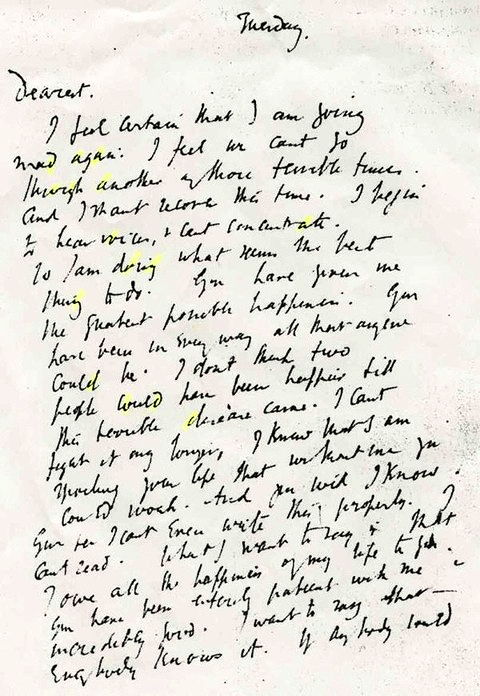 Tuesday.
Dearest.
I feel certain that I am going
mad again. I feel we cant go
through another of those terrible times.
And I shant recover this time. I begin
to hear voices, & cant concentrate.
So I am doing what seems the best
thing to do. You have given me
the greatest possible happiness. You
have been in every way all that anyone
could be. I dont think two
people could have been happier till
this terrible disease came. I cant
fight it any longer, I know that I am
spoiling your life, that without me you
could work. And you will I know.
You see I cant even write this properly. I
cant read. What I want to say is that
I owe all the happiness of my life to you.
You have been entirely patient with me &
incredibly good. I want to say that —
everybody knows it. If anybody could